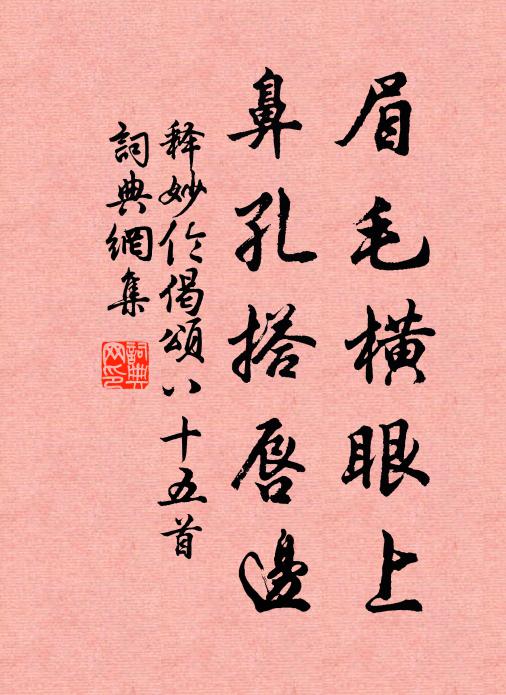 眉毛橫眼上
鼻孔搭唇邊
释妙伦偈頌八十五首
詞典網集
詞典網印